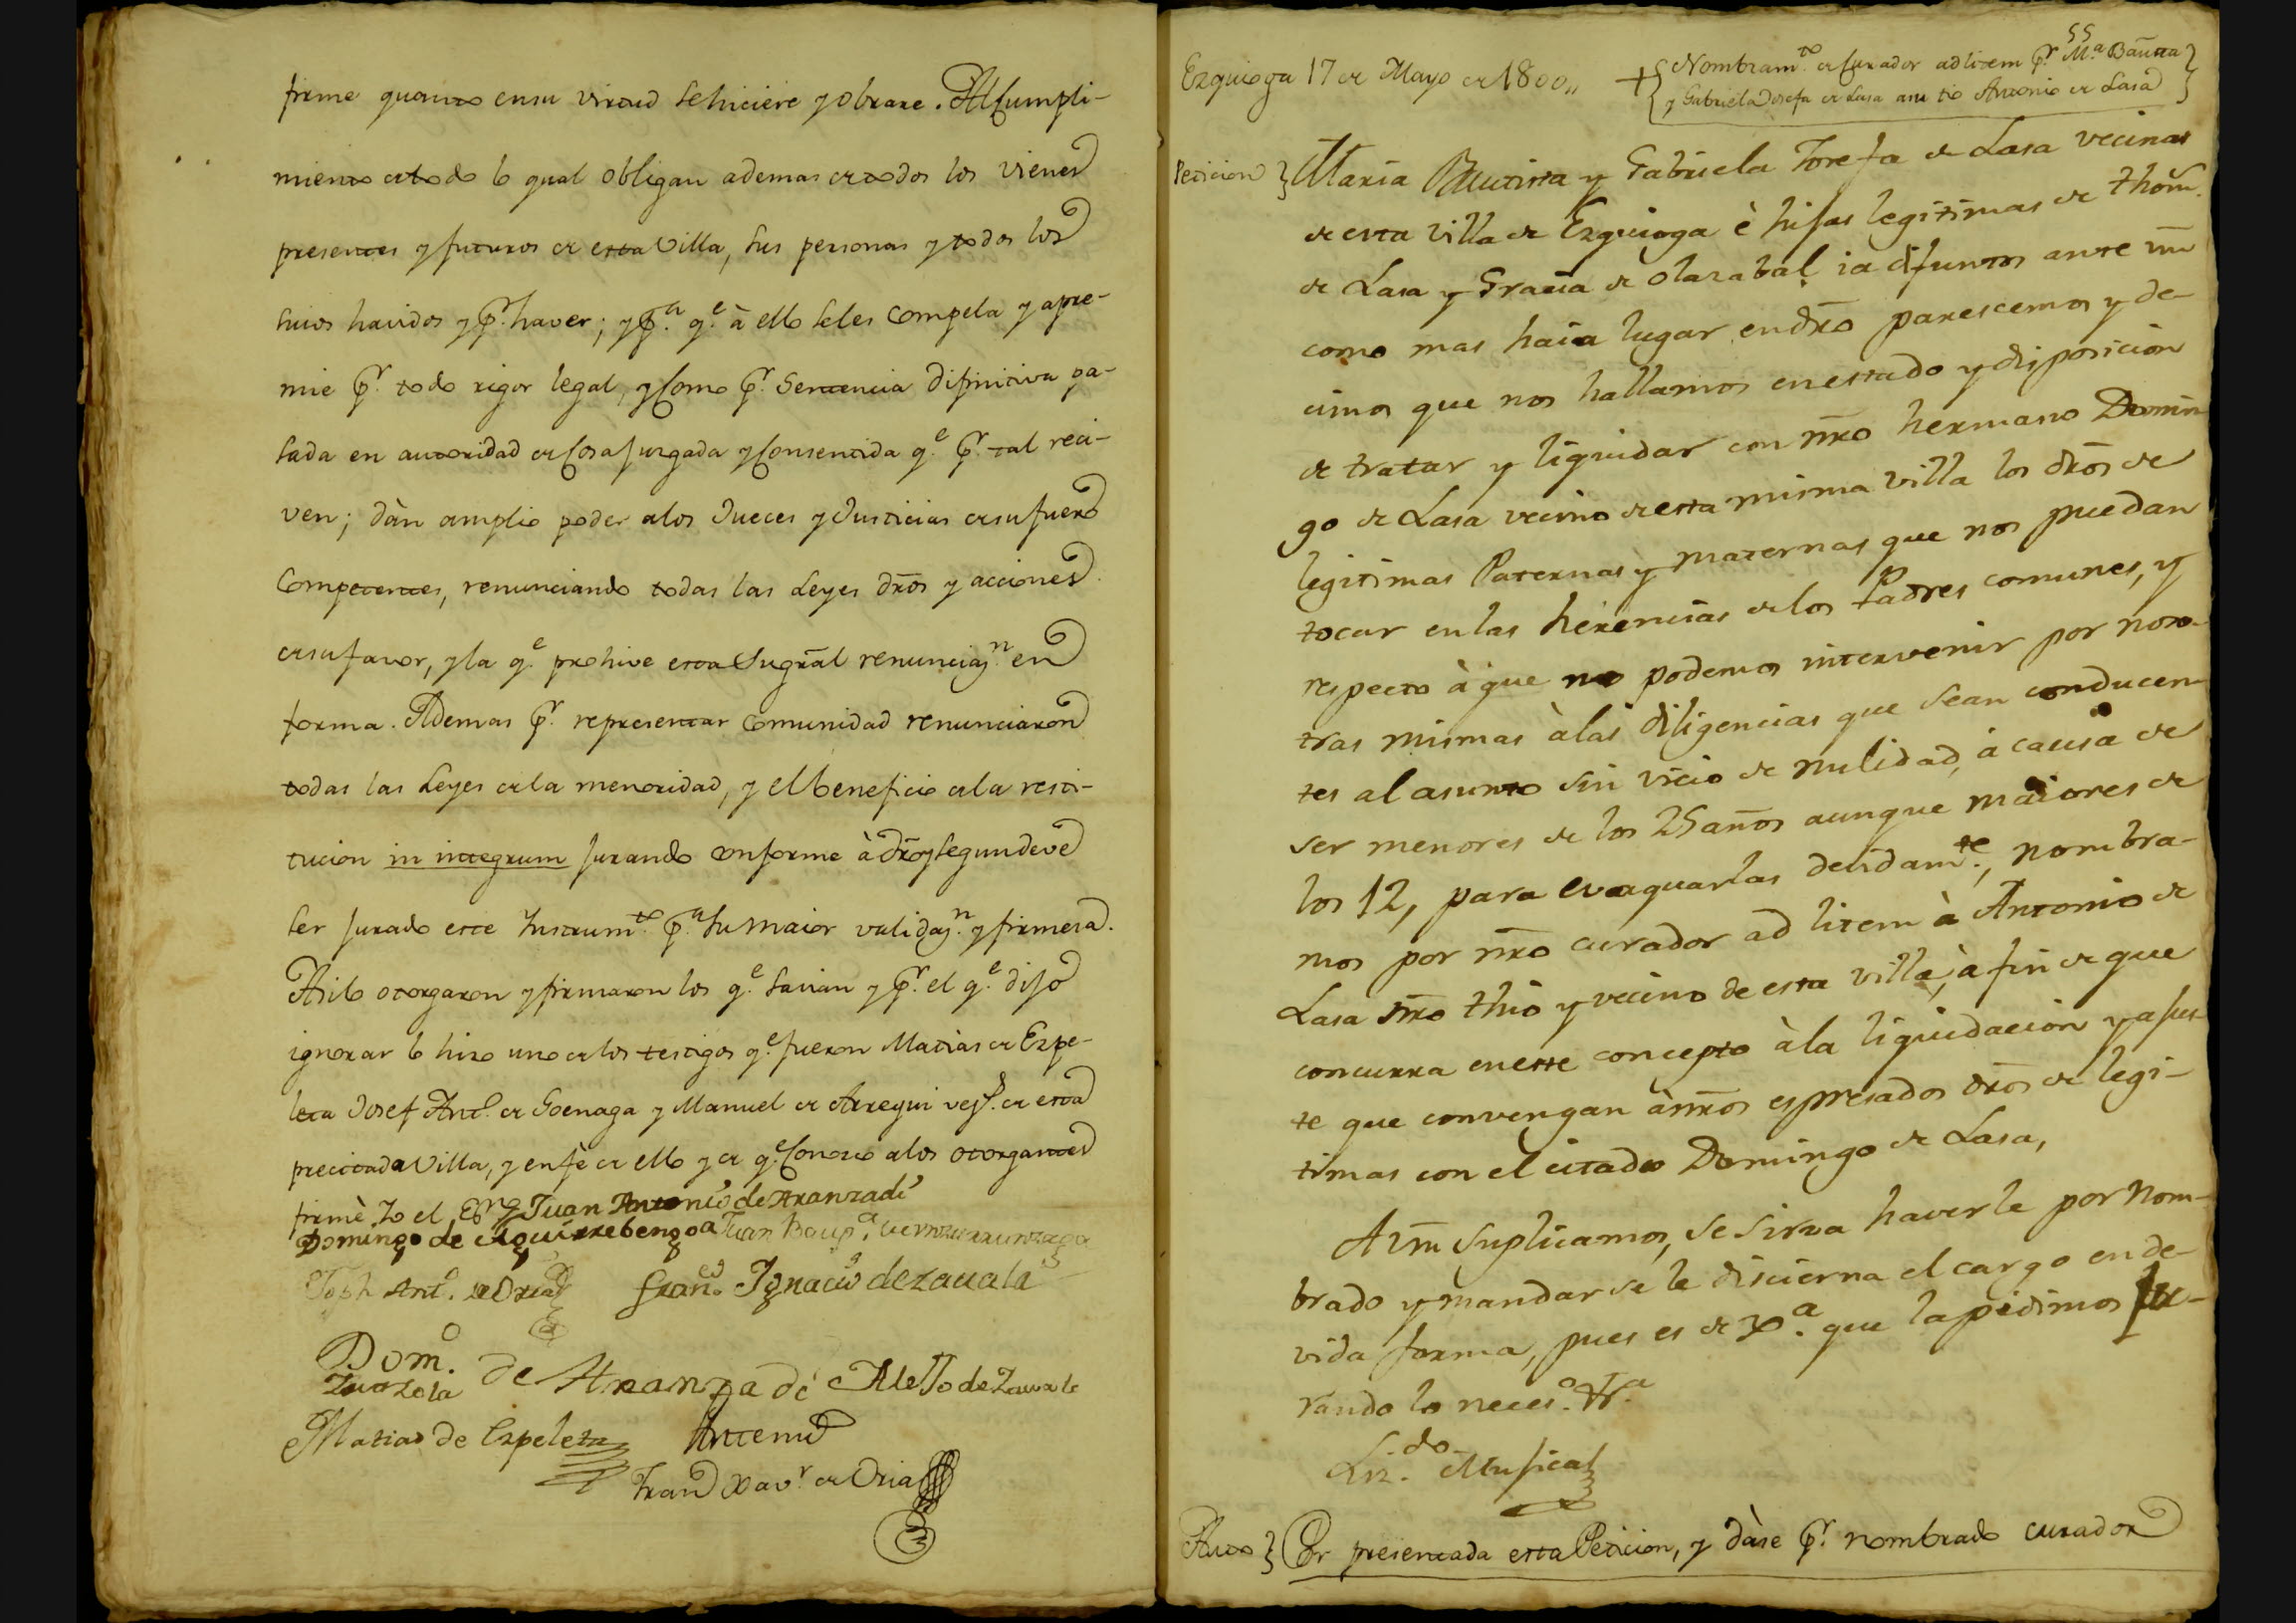 firme quanto en su virtud se hiciere y obrare. Al cumpli-
miento de todo lo qual obligan ademas de todos los vienes
presentes y futuros de esta Villa, sus personas y todos los
suios havidos y pr. haver; y pa. qe. à ello se les compela y apre-
mie pr. todo rigor legal, y como pr. Sentencia difinitiva pa-
sada en autoridad de cosa juzgada y consentida qe. pr. tal reci-
ven; dàn amplio poder a los Jueces y Justicias de su fuero
Competentes, renunciando todas las Leyes dros y acciones
de su favor, y la qe. prohive esta su gral renunciazn. en
forma. Ademas pr. representar comunidad renunciaron
todas las Leyes de la menoridad, y el beneficio de la resti-
tucion in integrum jurando conforme à dro, segun deve
ser jurado este Instrumto. pa. su maior validazn. y firmesa.
Asi lo otorgaron y firmaron los qe. savian y pr. el qe. dijo
ignorar lo hizo uno de los testigos qe. fueron Matias de Ezpe-
leta Josef Anto. de Goenaga y Manuel de Arregui vezs. de esta
precitada Villa, y en fè de ello y de qe. conozco a los otorgantes
firmè Yo el Esno Juan Antonio de Aranzadi
Domingo de Aguirrebengoa Juan Baupta.
Josph Anto. de Oria Franco. Ignacio de Zavala
Domo. de Aranzadi Alejo de Zavala
Zuazola
Matias de Ezpeleta Antemi
Frano Xavr. de Oria
55
Ezquioga 17 de Mayo de 1800,, + { Nombramto. de curador ad litem pr. Ma. Bautta
y Gabriela Josefa de Lasa a su tio Antonio de Lasa }
Peticion } Maria Bautista y Gabriela Josefa de Lasa vecinas
de esta villa de Ezquioga è hijas legitimas de Thom.
de Lasa y Gracia de Olazabal ia difuntos ante vm
como mas haia lugar en dro parescemos y de-
cimos que nos hallamos en estado y disposicion
de tratar y liquidar con nro hermano Domin-
go de Lasa vecino de esta misma villa los dros de
legitimas Paternas y maternas que nos puedan
tocar en las herencias de los Padres comunes, y
respecto à que no podemos intervenir por noso-
tras mismas à las diligencias que sean conducen-
tes al asunto sin vicio de nulidad, à causa de
ser menores de los 25 años aunque maiores de
los 12, para evaquarlas devidamte., nombra-
mos por nro curador ad litem à Antonio de
Lasa nro thio y vecino de esta villa, à fin de que
concurra en este concepto à la liquidacion y ajus-
te que convengan à nros espresados dros de legi-
timas con el citado Domingo de Lasa,
A vm suplicamos, se sirva haverle por nom-
brado y mandar se le discierna el cargo en de-
vida forma, pues es de Jxa. que la pedimos ju-
rando lo neceso. &a.
Lizdo. Mujica
Auto } Por presentada esta Peticion, y dàse pr. nombrado curador